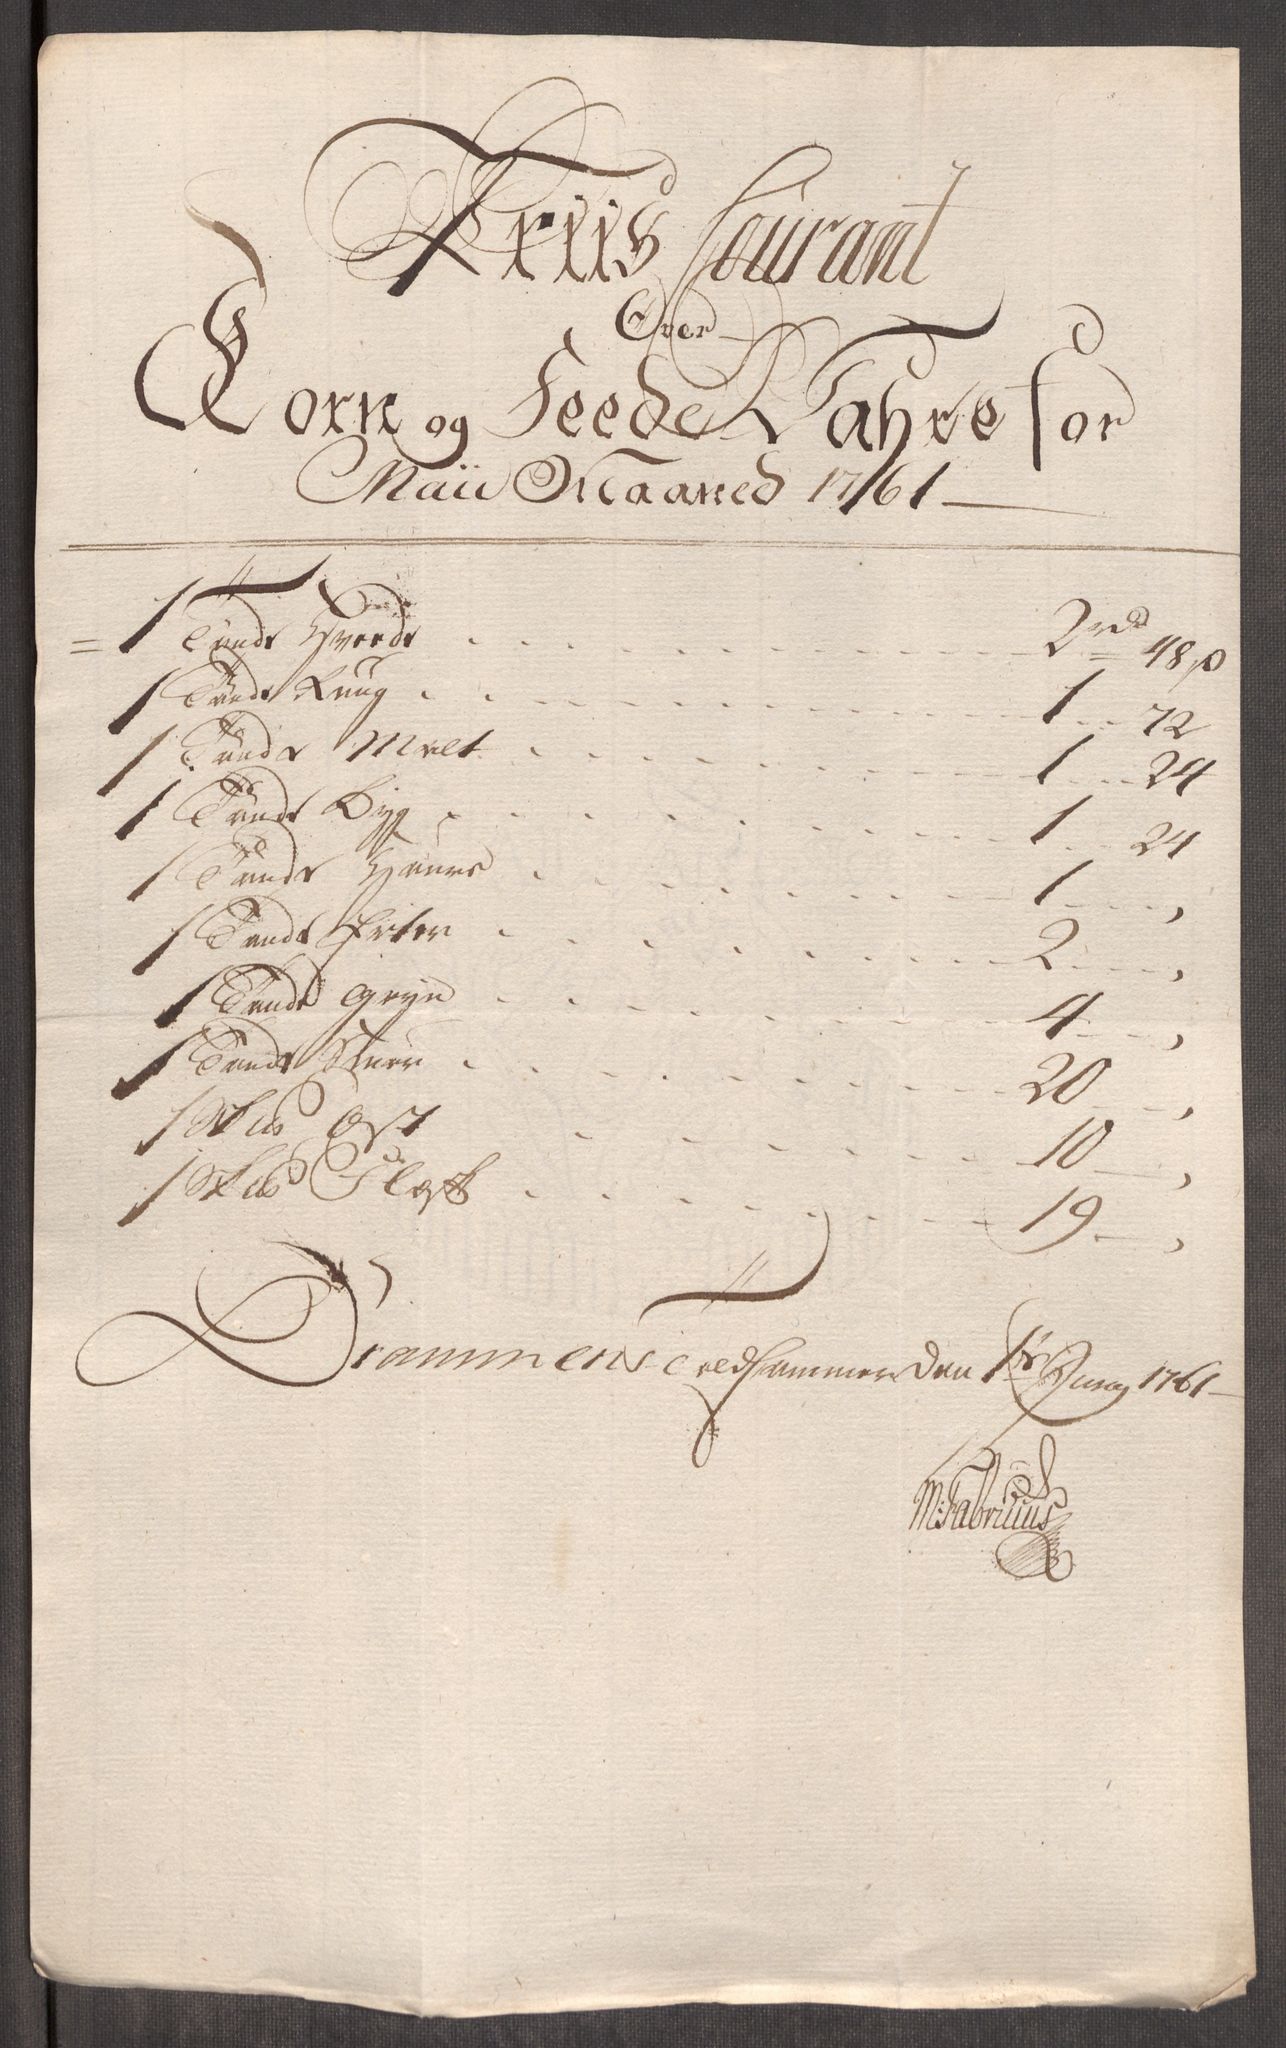 Priis Courant
Over
Korn og Feede Vahre for
Maii Maaned 1761
1 Tønde Hvede 2 rd 48 ß
1 Tønde Rug 1 72
1 Tønde Malt 1 24
1 Tønde Byg 1 24
1 Tønde Havre 1 „
1 Tønde Erter 2 „
1 Tønde Gryn 4 „
1 Tønde Smør 20 „
1 Sk℔ Ost 10 „
1 Sk℔ Flesk 19 „
Drammens den 1te Juny 1761
M: Fabritius